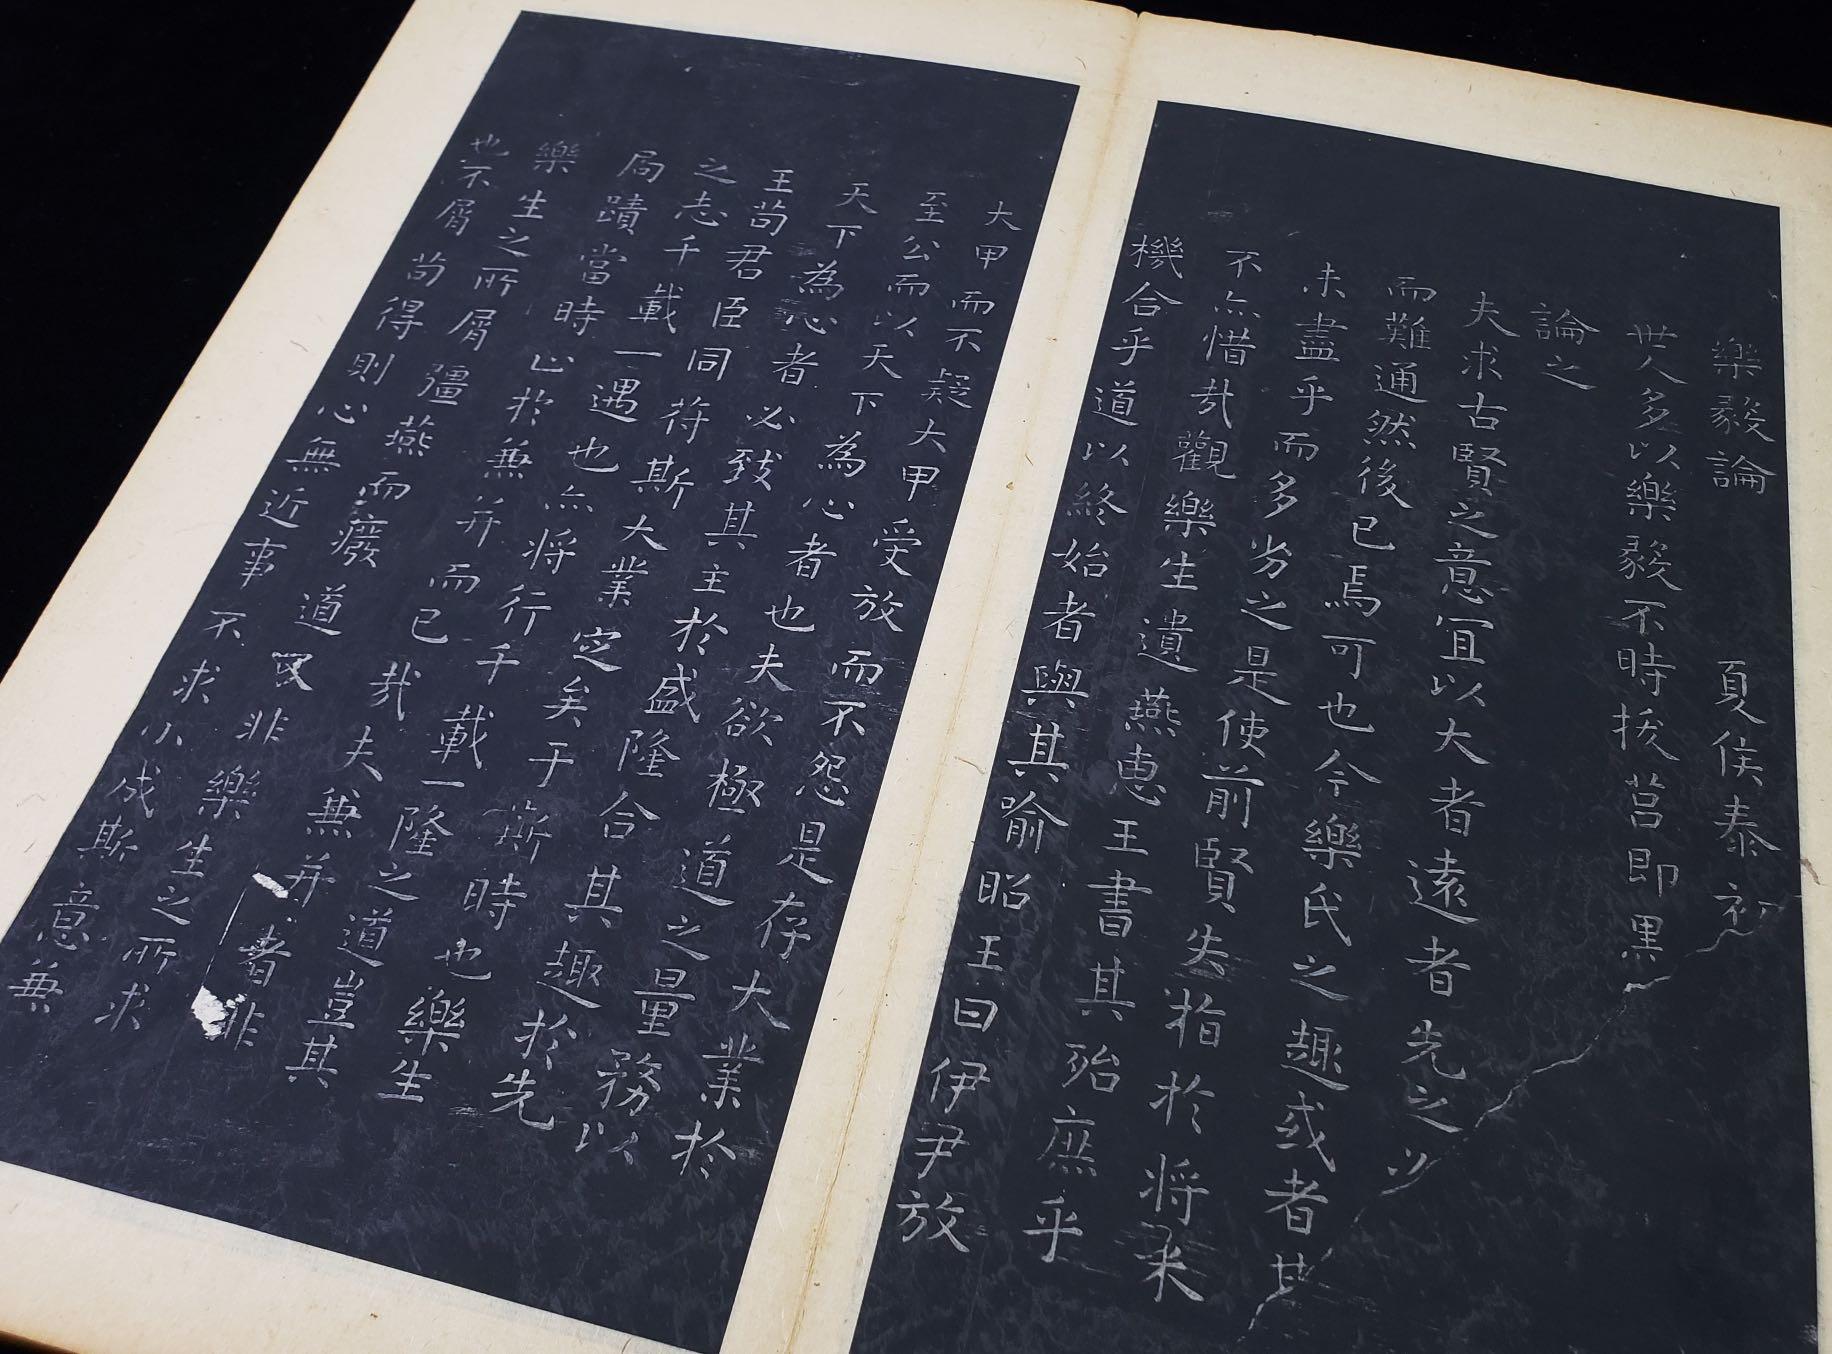 樂毅論 夏侯泰初
世人多以樂毅不時拔莒即墨
論之
夫求古賢之意宜以大者遠者先之必
而難通然後已焉可也今樂氏之趣或者其
未盡乎而多劣之是使前賢失指於将来
不亦惜哉觀樂生遺燕惠王書其殆庶乎
機合乎道以終始者與其喻昭王曰伊尹放
大甲而不疑大甲受放而不怨是存大業於
至公而以天下為心者也夫欲極道之量務以
天下為心者必致其主於盛隆合其趣於先
王苟君臣同符斯大業定矣于斯時也樂生
之志千載一遇也亦将行千載一隆之道豈其
局蹟當時止於兼并而已哉夫兼并者非
樂生之所屑彊燕而廢道又非樂生之所求
也不屑苟得則心無近事不求小成斯意兼